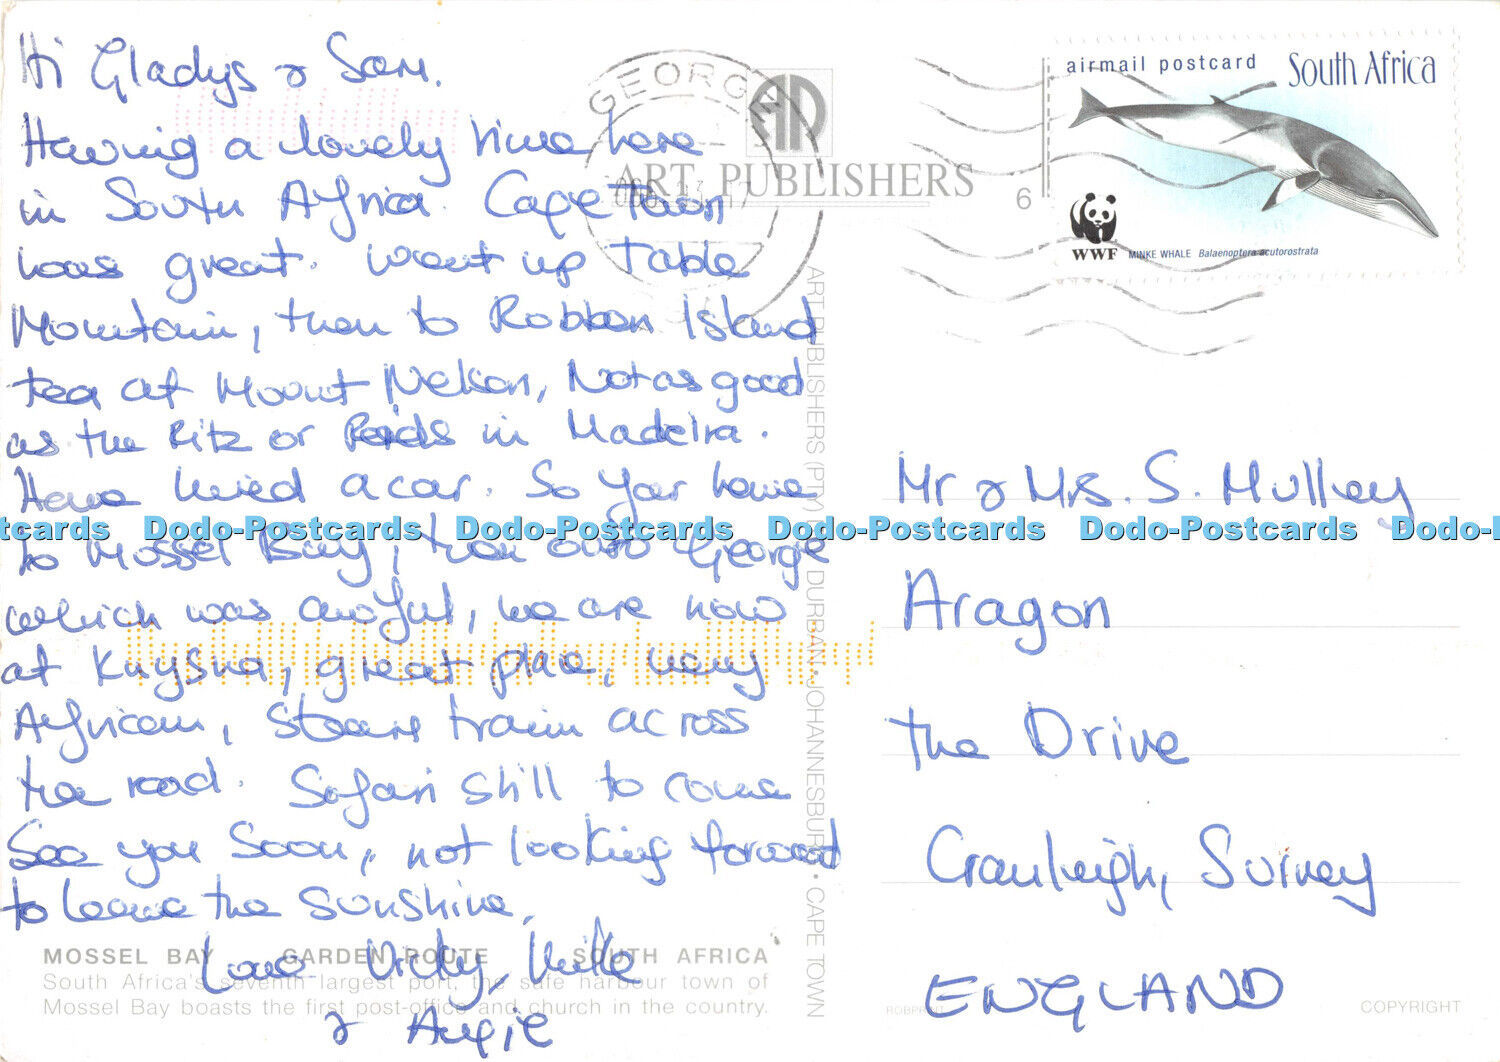 Hi Gladys & Sam.
Having a lovely time here
in South Africa. Cape Town
was great. Went up Table
Mountain, then to Robben Island
tea at Mount Nelson, Not as good
as the Ritz or Reids in Madeira.
Have hired a car. So far have
to Mossel Bay, then onto George
which was awful, we are now
at Knysna, great place, very
African, steam train across
the road. Safari still to come
See you Soon, not looking forward
to leave the sunshine,
Love Vicky, Mike
& Angie
MOSSEL BAY GARDEN ROUTE SOUTH AFRICA
South Africa's seventh largest port, the safe harbour town of
Mossel Bay boasts the first post-office and church in the country.
GEORGE
ART PUBLISHERS
ART PUBLISHERS (PTY) DURBAN • JOHANNESBURG • CAPE TOWN
6
airmail postcard South Africa
WWF MINKE WHALE Balaenoptera acutorostrata
Mr & Mrs. S. Mulley
Aragon
the Drive
Cranleigh, Surrey
ENGLAND
COPYRIGHT
Dodo-Postcards Dodo-Postcards Dodo-Postcards Dodo-Postcards